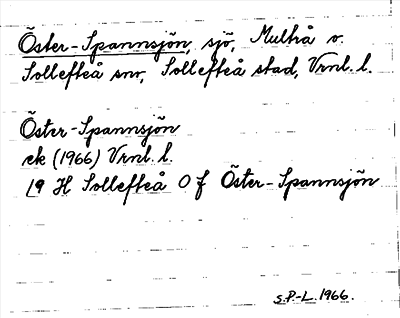 Öster-Spannsjön, sjö, Multrå v.
Sollefteå snr, Sollefteå stad, Vrnl. l.
Öster-Spannsjön
ek (1966) Vrnl. l.
19 H Sollefteå 0 f Öster-Spannsjön
S.P-L. 1966.